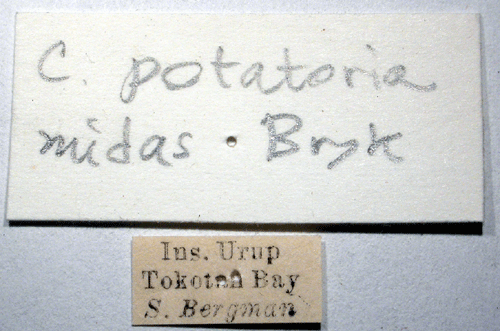 C. potatoria
midas Bryk
Ins. Urup
Tokotan Bay
S. Bergman